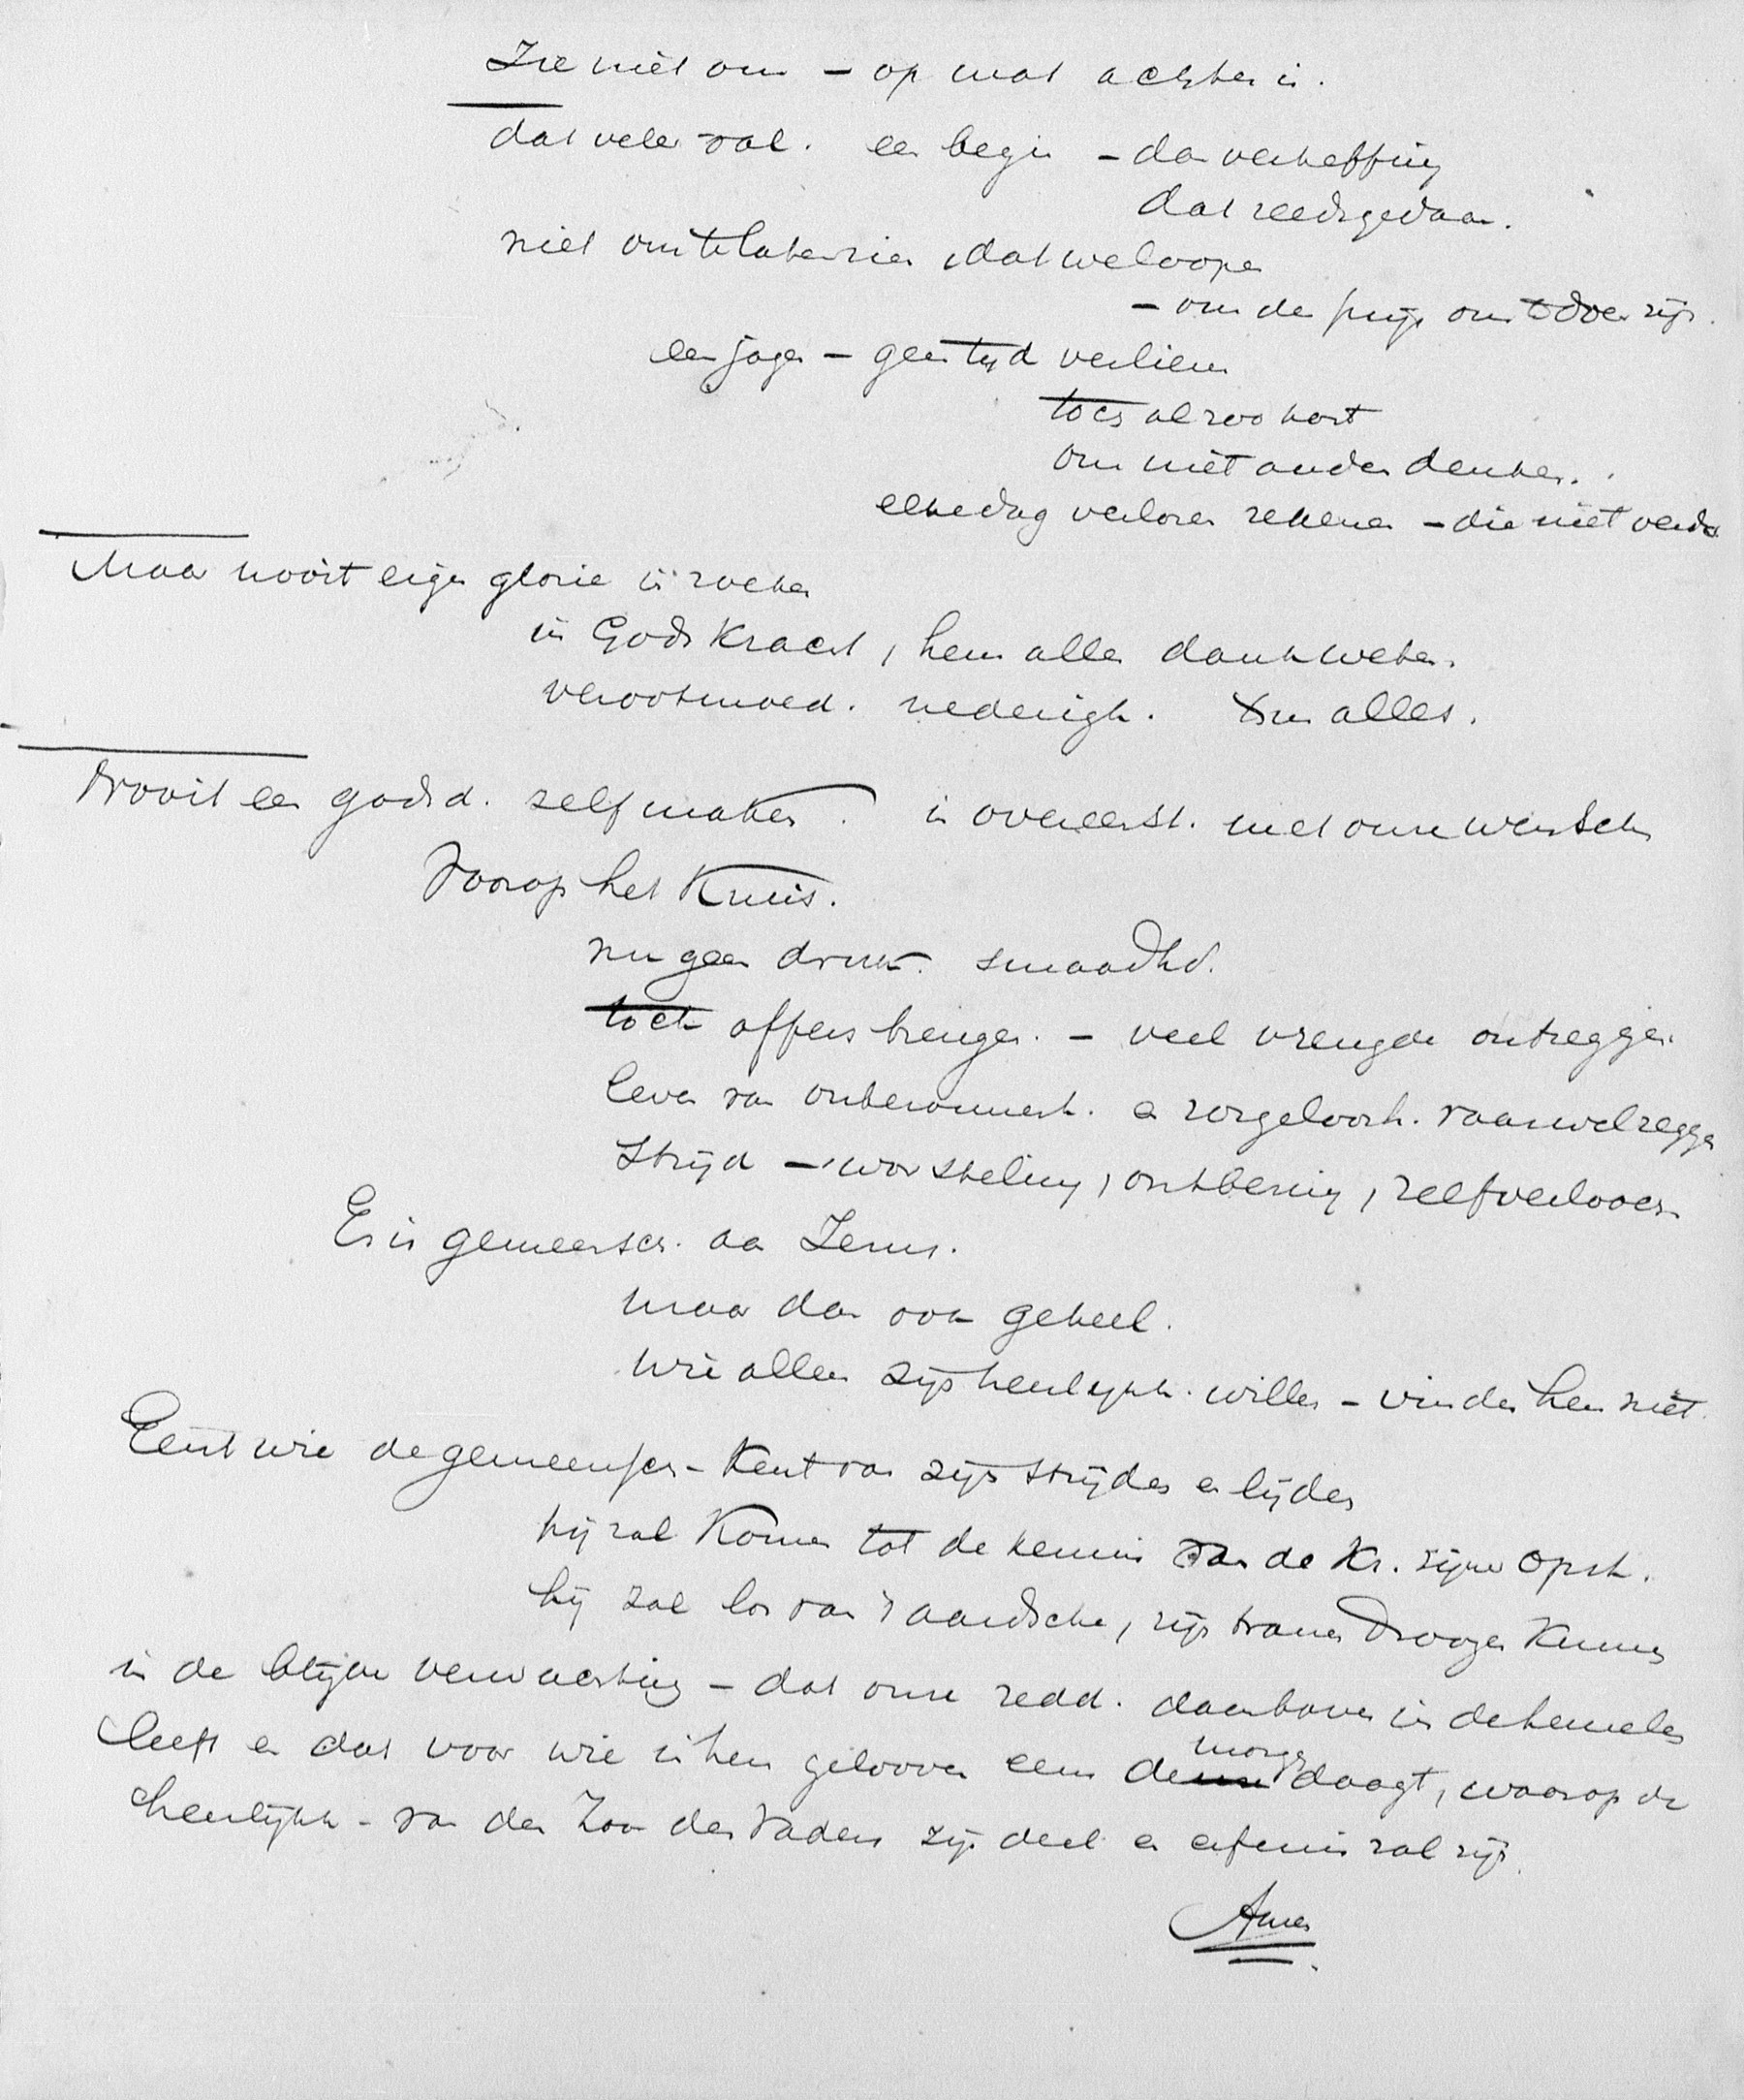 Zie niet om – op wat achter is.
dat velen val. een begin – dan verheffing
dat reeds gedaan.
niet om te laten zien, dat we loopen
– om de prijs om te doen zijn.
een jagen – geen tijd verliezen
toch al zoo kort
om niet anders denken.
elke dag verloren rekenen – die niet
Maar nooit eigen glorie in zoeken
in Gods Kracht, hem alle dank weten.
verootmoed. nederigh. alles.
Nooit een godsd. zelf maken. in overeenst. met onze wensch
Voorop het Kruis.
nu geen druk. smaadhd.
toch offers brengen. – veel vreugde ontzeggen.
leven van onbekommerh. en zorgeloosh. vaarwel zeggen
Strijd – worsteling, ontbering, zelfverlooch.
Er is gemeensch. aan Jezus.
maar dan ook geheel.
wie alleen zijn heerlijkh. willen – vinden hem niet.
Eerst wie de gemeensch – Kent van zijn strijden en lijden
hij zal Komen tot de kennis van de Kr. zijner Opst.
hij zal los van 't aardsche, zijn tranen drogen Kunnen
in de blijde verwachting – dat onze redd. daarboven in de hemelen
leeft en dat voor wie in hem gelooven eens de morgen daagt, waarop de
heerlijkh – van den Zoon des Vaders zijn deel en erfenis zal zijn.
Amen